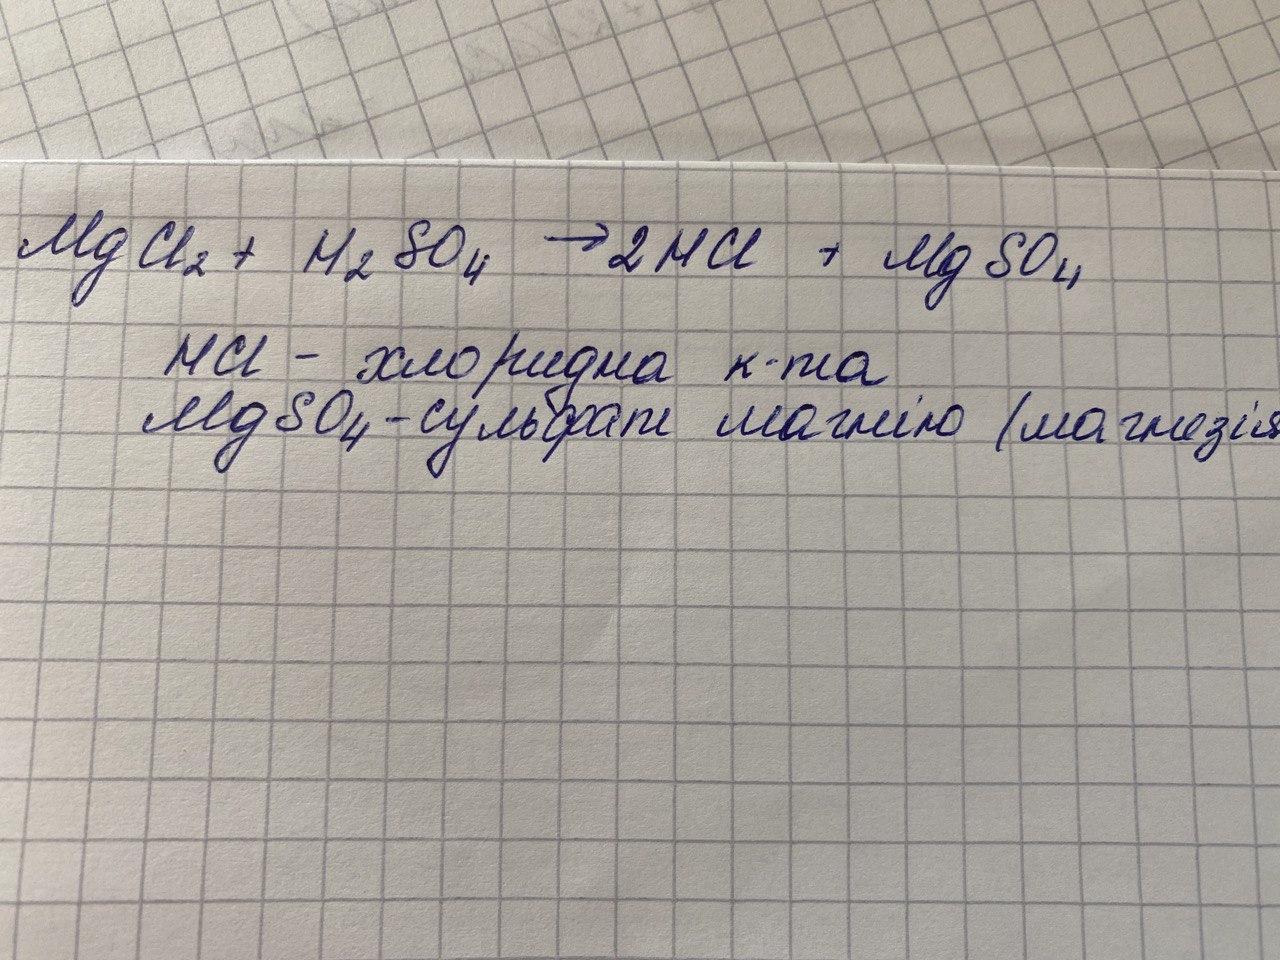 MgCl₂ + H₂SO₄ → 2HCl + MgSO₄
HCl - хлоридна к-та
MgSO₄ - сульфат магнію (магнезія